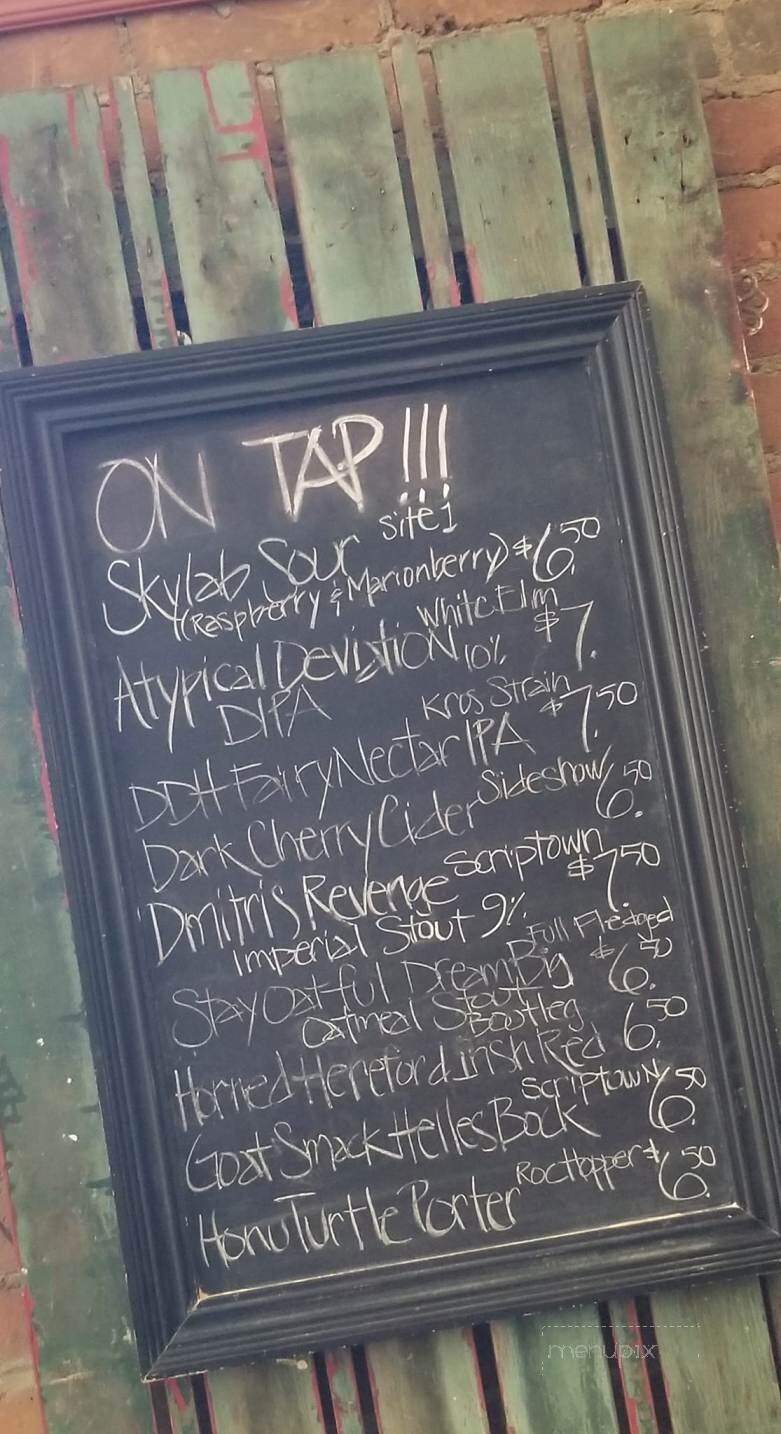 ON TAP!!!
Skylab Sour Site 1
(Raspberry & Marionberry) $6.50
Atypical Deviation 10% White Elm $7.
DIPA
DDH Fairy Nectar IPA Kros Strain $7.50
Dark Cherry Cider Sideshow 6.50
Dmitris Revenge Scriptown $7.50
Imperial Stout 9%
Stay Oatful Dream Big Full Fledged $6.50
Oatmeal Stout
Horned Hereford Irish Red Bootleg 6.50
Goat Smack Helles Bock Scriptown 6.50
Honu Turtle Porter RocHopper $6.50
menupix